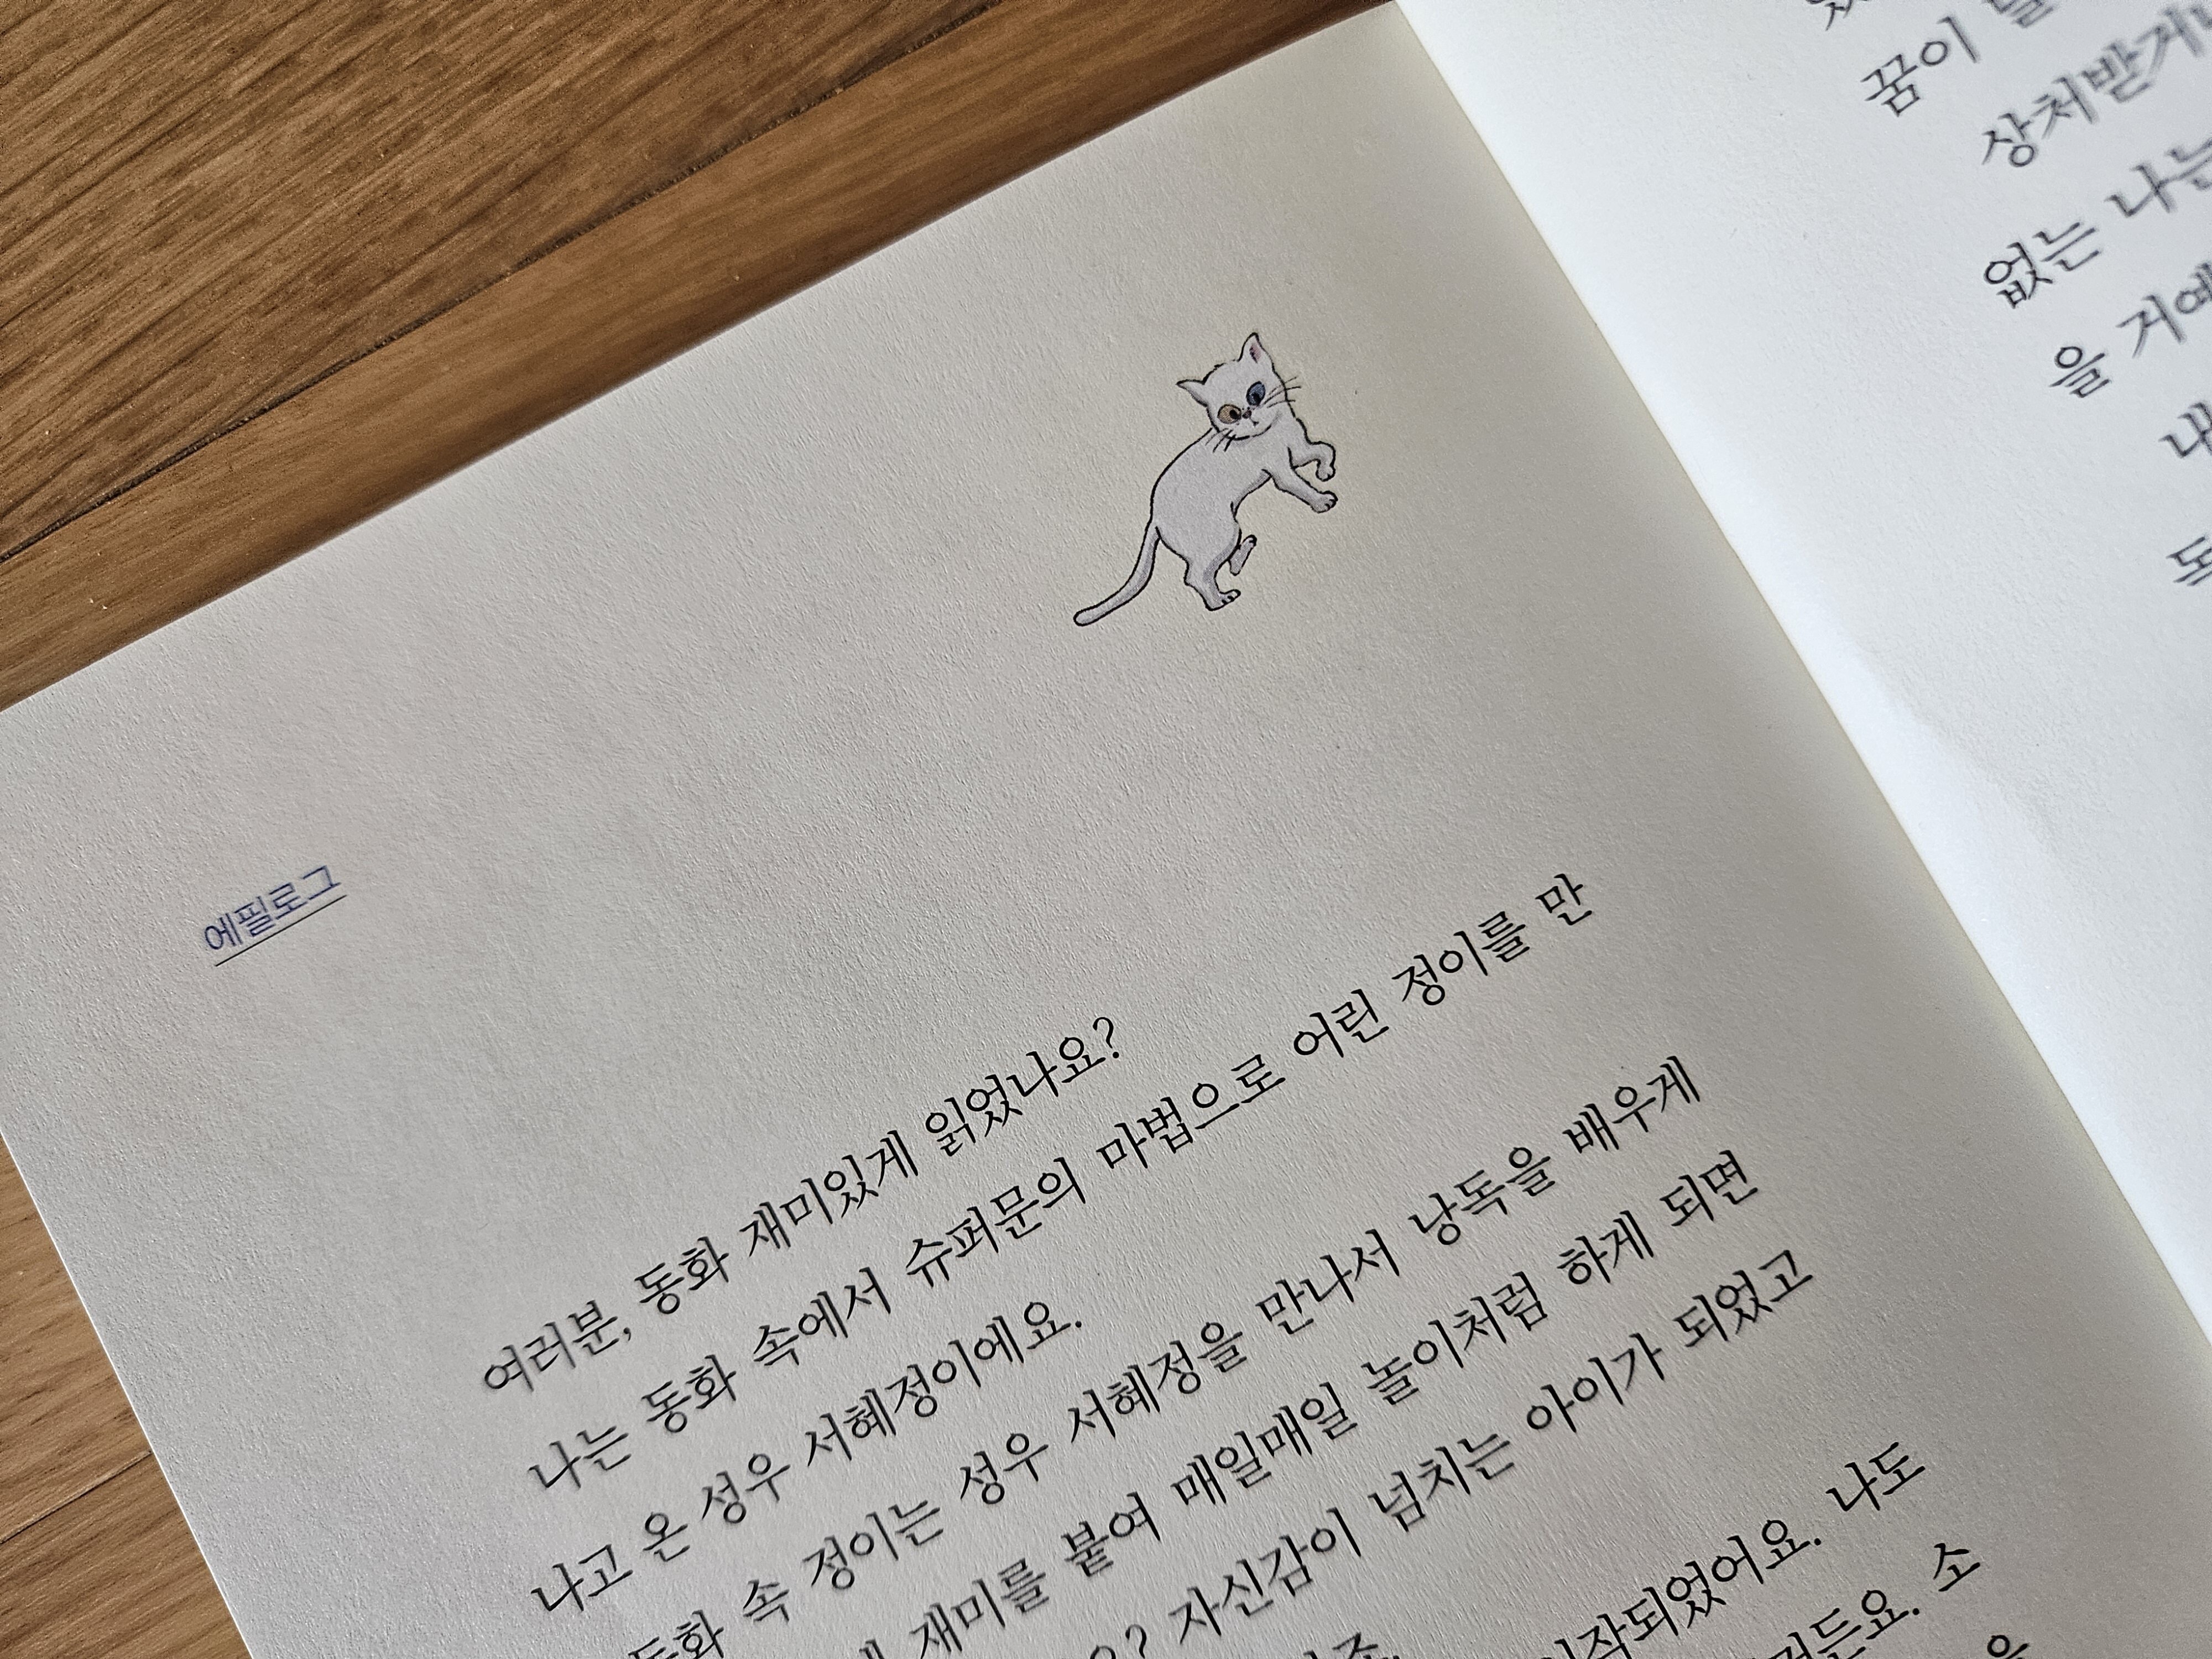 에필로그
여러분, 동화 재미있게 읽었나요?
나는 동화 속에서 슈퍼문의 마법으로 어린 정이를 만
나고 온 성우 서혜정이에요.
동화 속 정이는 성우 서혜정을 만나서 낭독을 배우게
재미를 붙여 매일매일 놀이처럼 하게 되면
자신감이 넘치는 아이가 되었고
나도
소
꿈이
상처받
없는 나는
을 거예